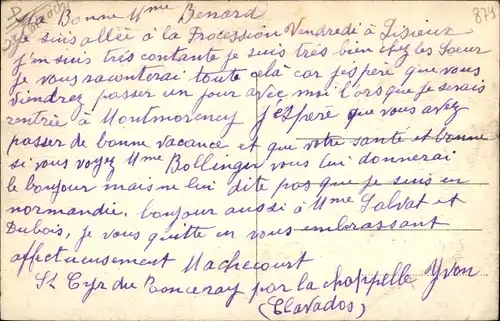 Ma Bonne Mme Benard 879
Je suis allée à la Procession Vendredi à Lisieux
j'en suis très contante je suis très bien chez les Sœur
je vous raconterai toute celà car j'espère que vous
viendrez passer un jour avec moi l'orsque je serais
rentrée à Montmorency j'espère que vous avez
passer de bonne vacance et que votre santé et bonne
si vous voyez Mme Bollinger vous lui donnerai
le bonjour mais ne lui dite pas que je suis en
normandie, bonjour aussi à Mme Salvat et
Dubois, je vous quitte en vous embrassant
affectueusement Machecourt Yvon
St Cyr du Ronceray par la chappelle
(Clavados)